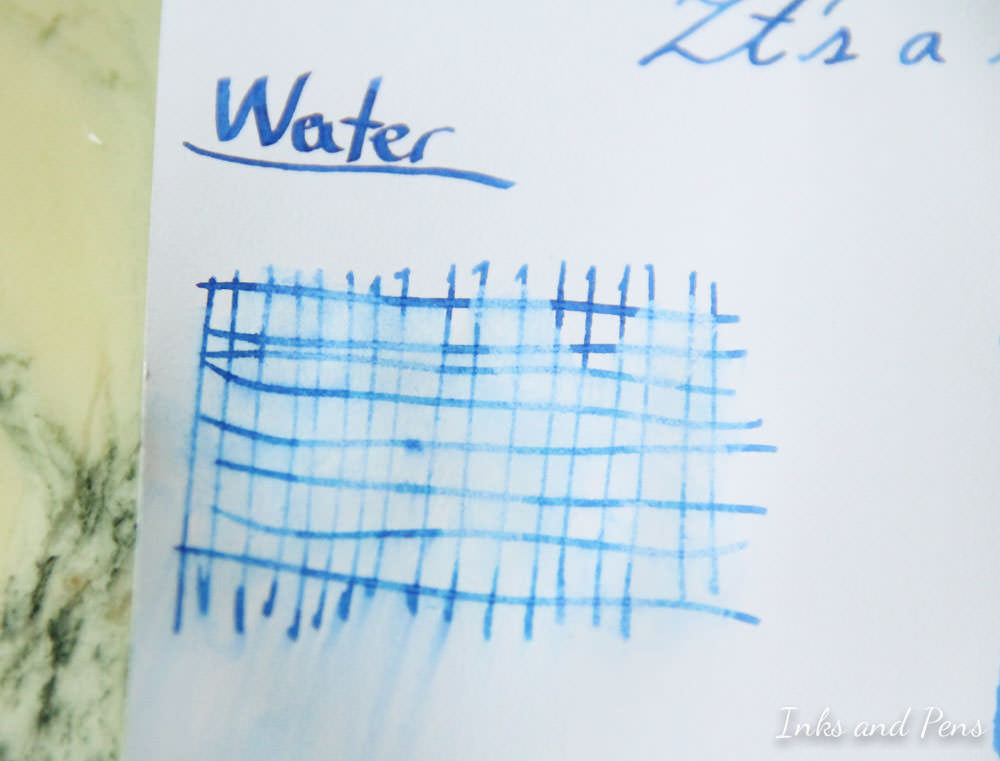 It's a
Water
Inks and Pens